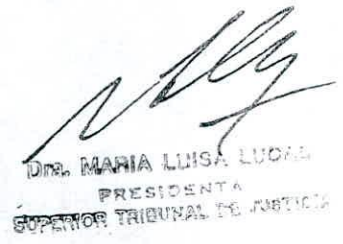 Dra. MARIA LUISA LUCAS
PRESIDENTA
SUPERIOR TRIBUNAL DE JUSTICIA